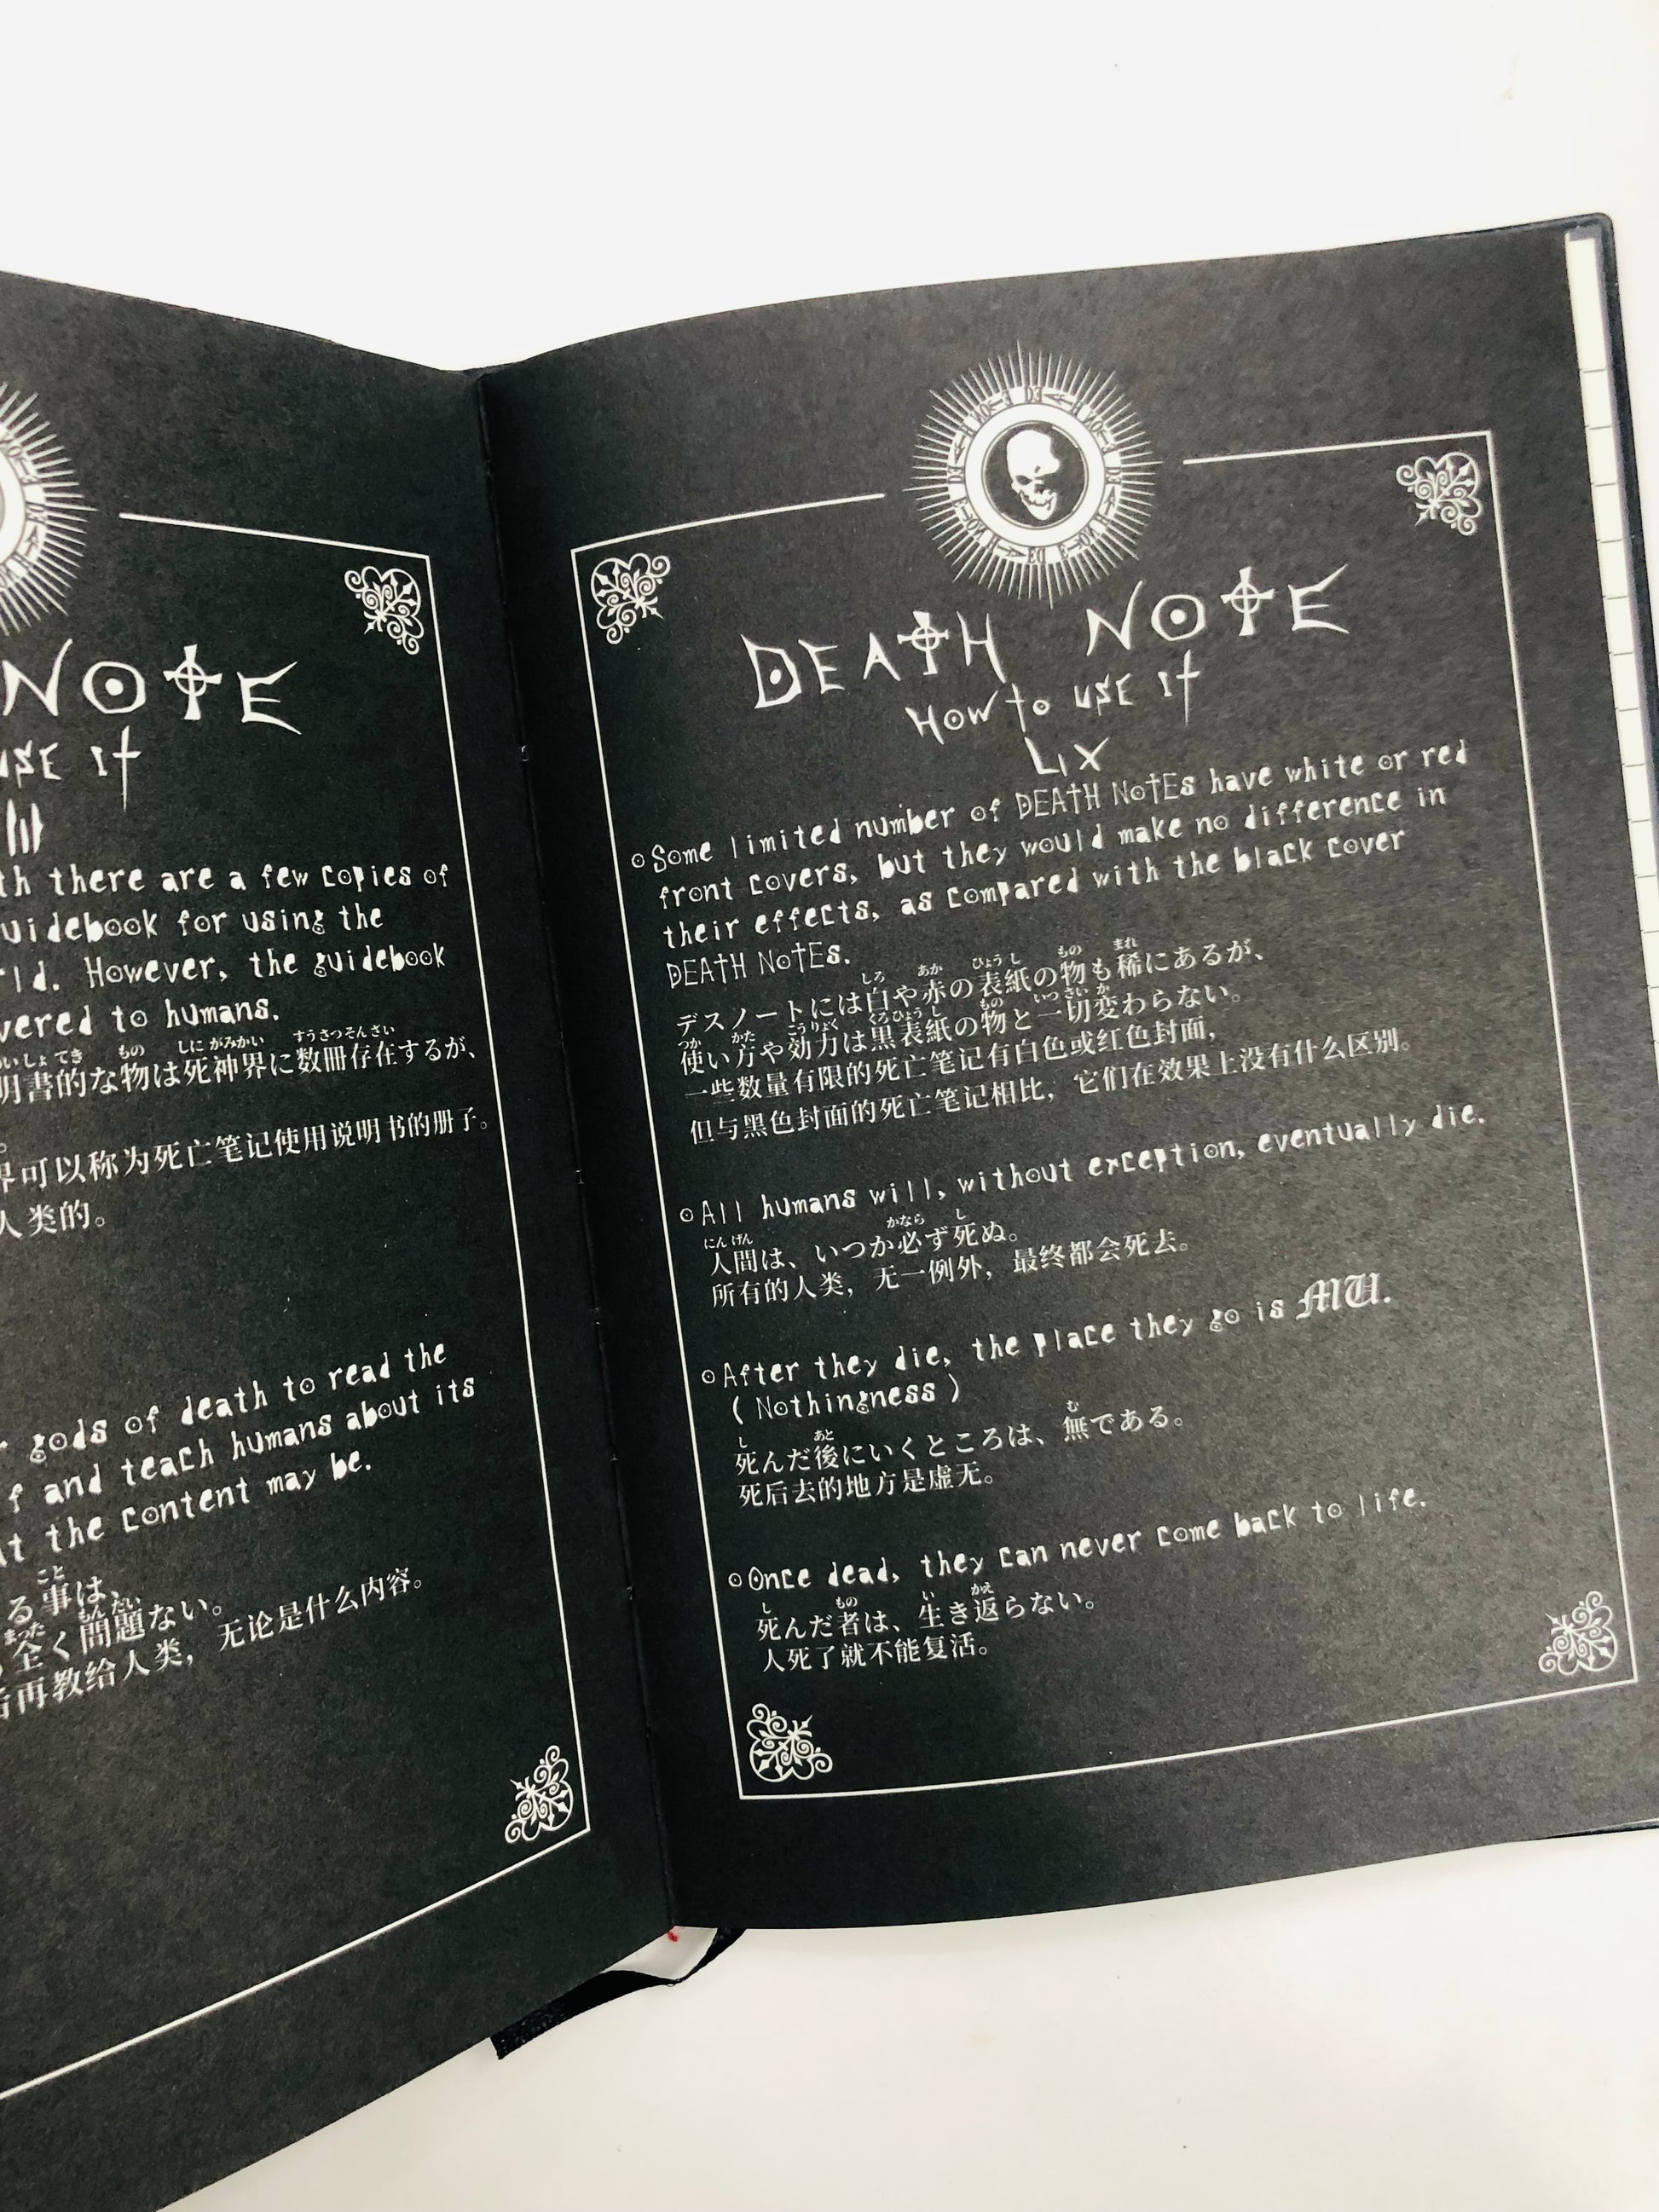 NOTE
USE It
th there are a few copies of
uidebook for using the
rld. However, the guidebook
vered to humans.
明書的な物は死神界に数冊存在するが、
界可以称为死亡笔记使用说明书的册子。
人类的。
gods of death to read the
f and teach humans about its
at the content may be.
る事は、
全く問題ない。
再教给人类，无论是什么内容。
DEATH NOTE
How to use it
LIX
Some limited number of DEATH NOTEs have white or red
front covers, but they would make no difference in
their effects, as compared with the black cover
DEATH NOTEs.
デスノートには白や赤の表紙の物も稀にあるが、
使い方や効力は黒表紙の物と一切変わらない。
一些数量有限的死亡笔记有白色或红色封面，
但与黑色封面的死亡笔记相比，它们在效果上没有什么区别。
All humans will, without exception, eventually die.
人間は、いつか必ず死ぬ。
所有的人类，无一例外，最终都会死去。
After they die, the place they go is MU.
( Nothingness )
死んだ後にいくところは、無である。
死后去的地方是虚无。
Once dead, they can never come back to life.
死んだ者は、生き返らない。
人死了就不能复活。